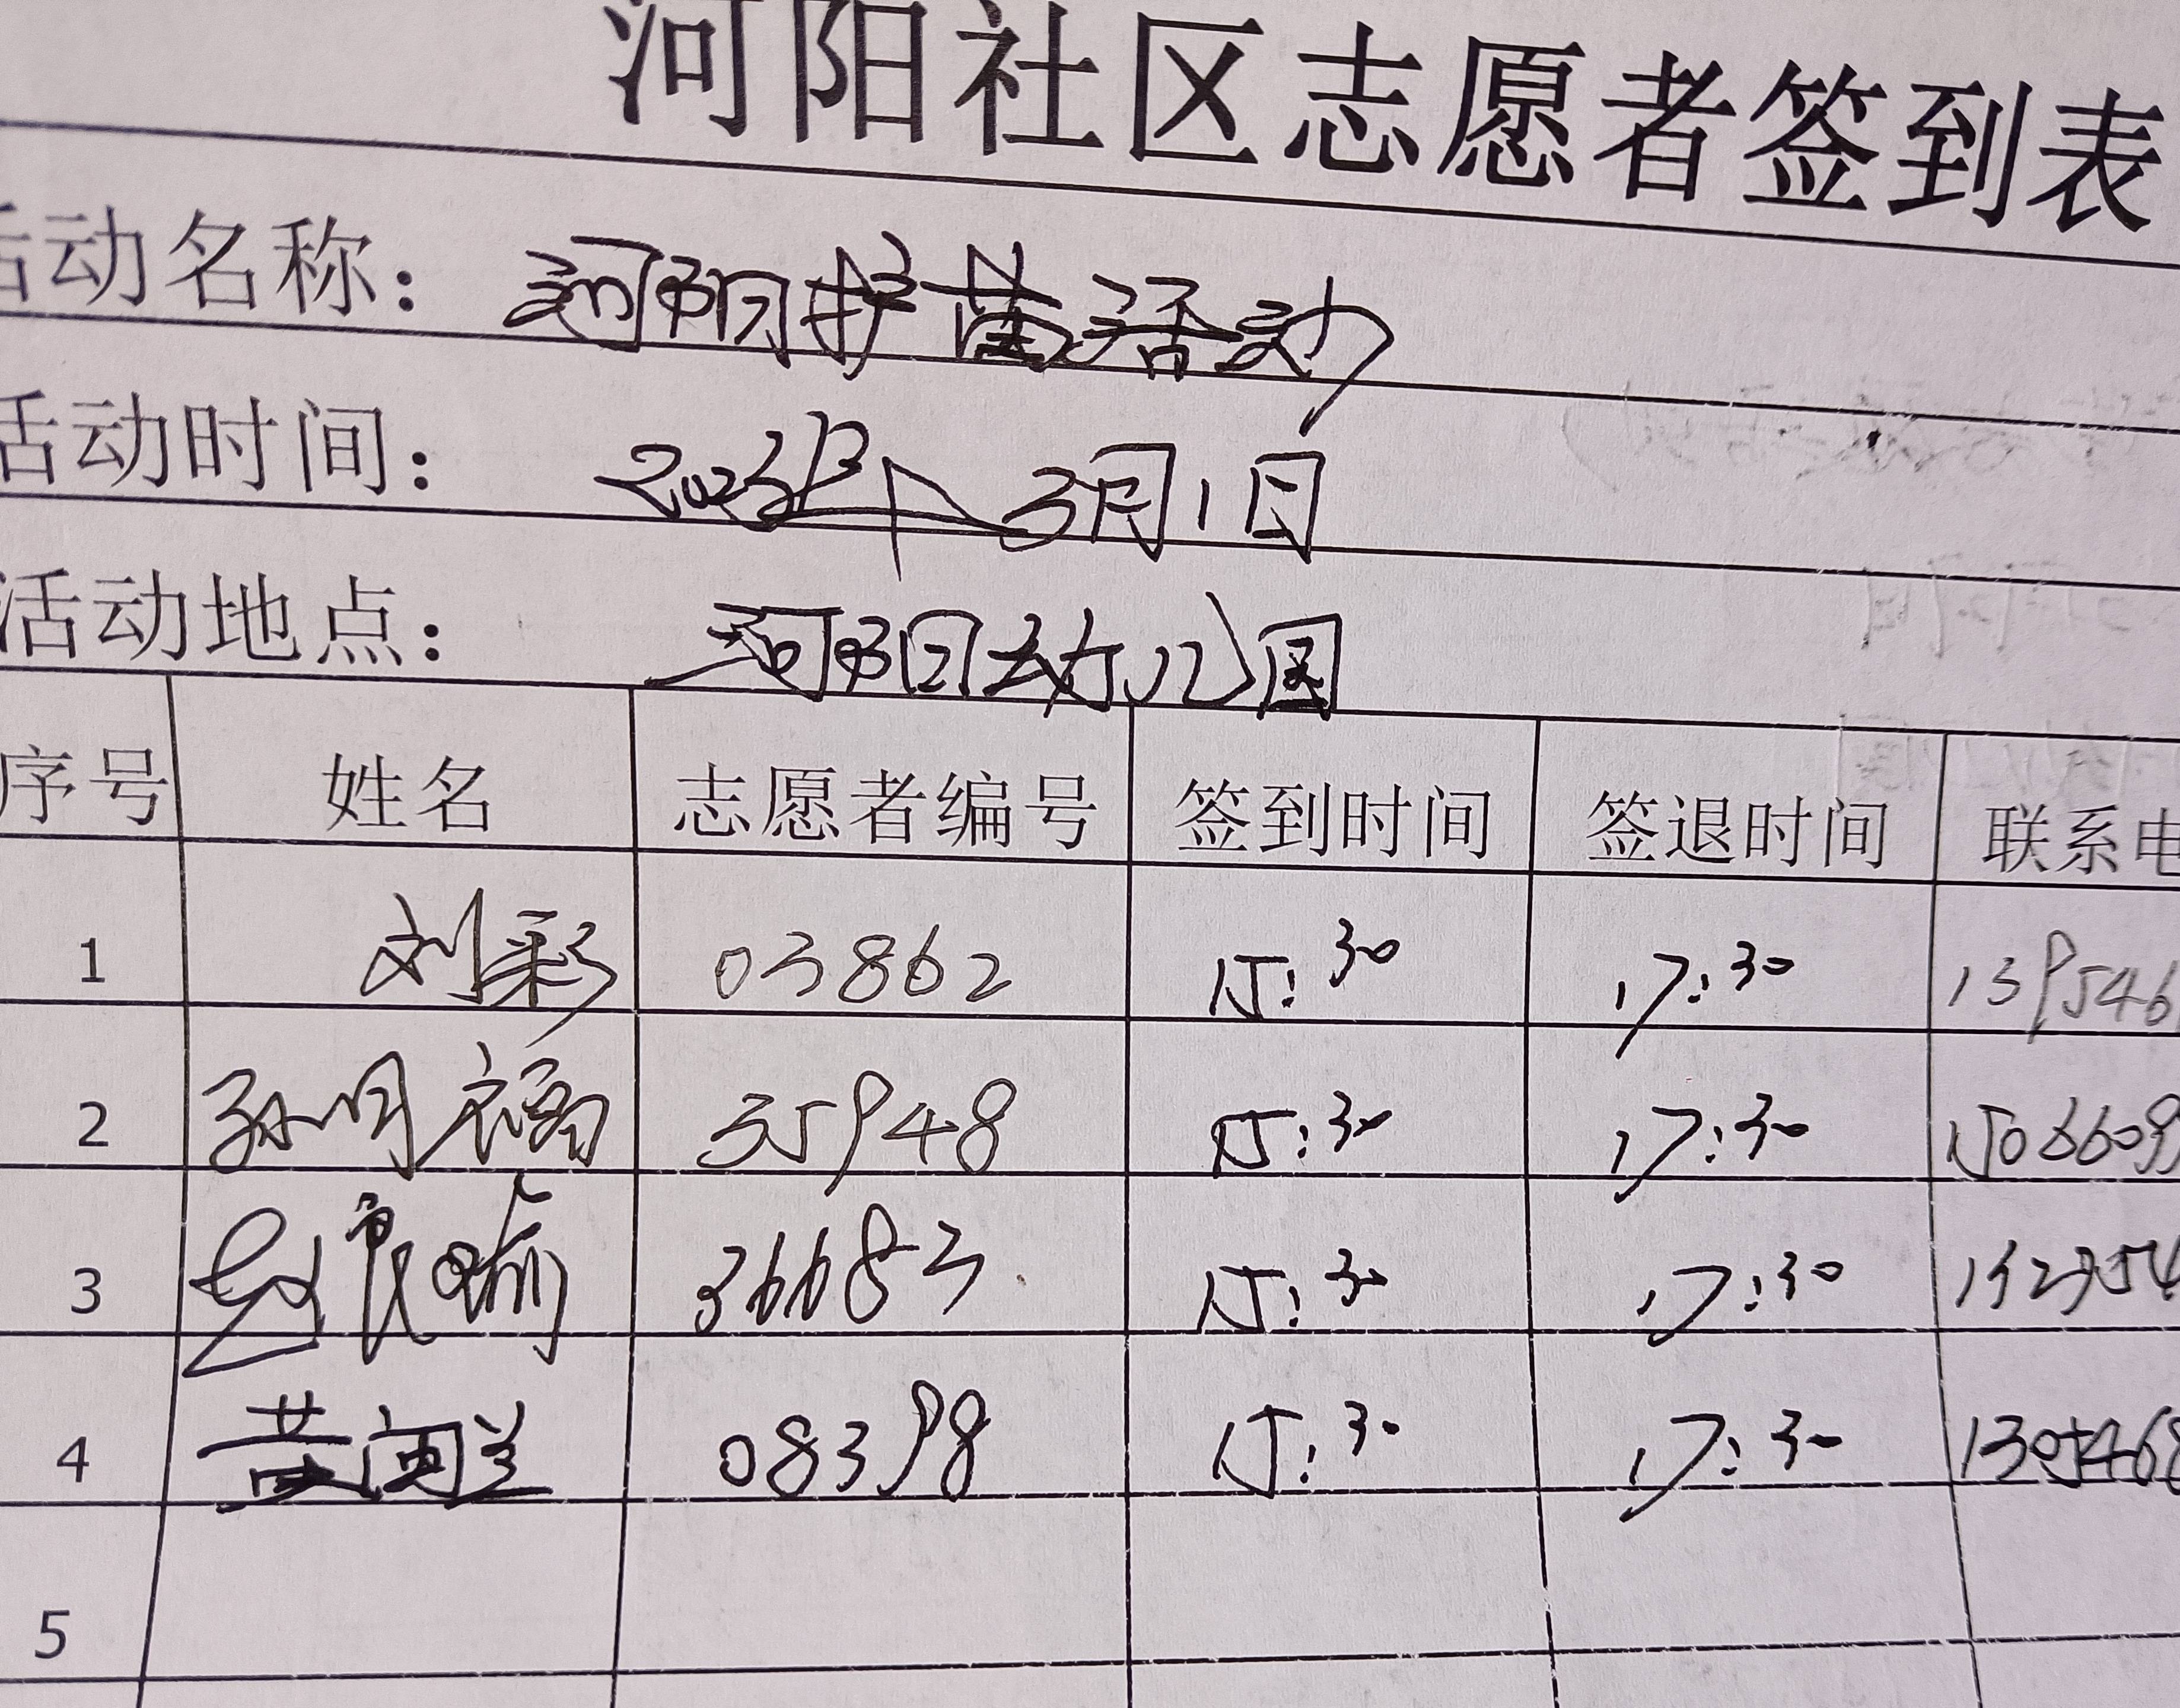 河阳社区志愿者签到表
活动名称：河阳护苗活动
活动时间：3月1日
活动地点：河阳幼儿园
序号 姓名 志愿者编号 签到时间 签退时间 联系电
1 刘彩 03862 15:30 17:30 139546
2 孙明福 35948 15:30 17:30 1506609
3 36683 15:30 17:30
4 黄闽兰 08398 15:30 17:30 1305468
5